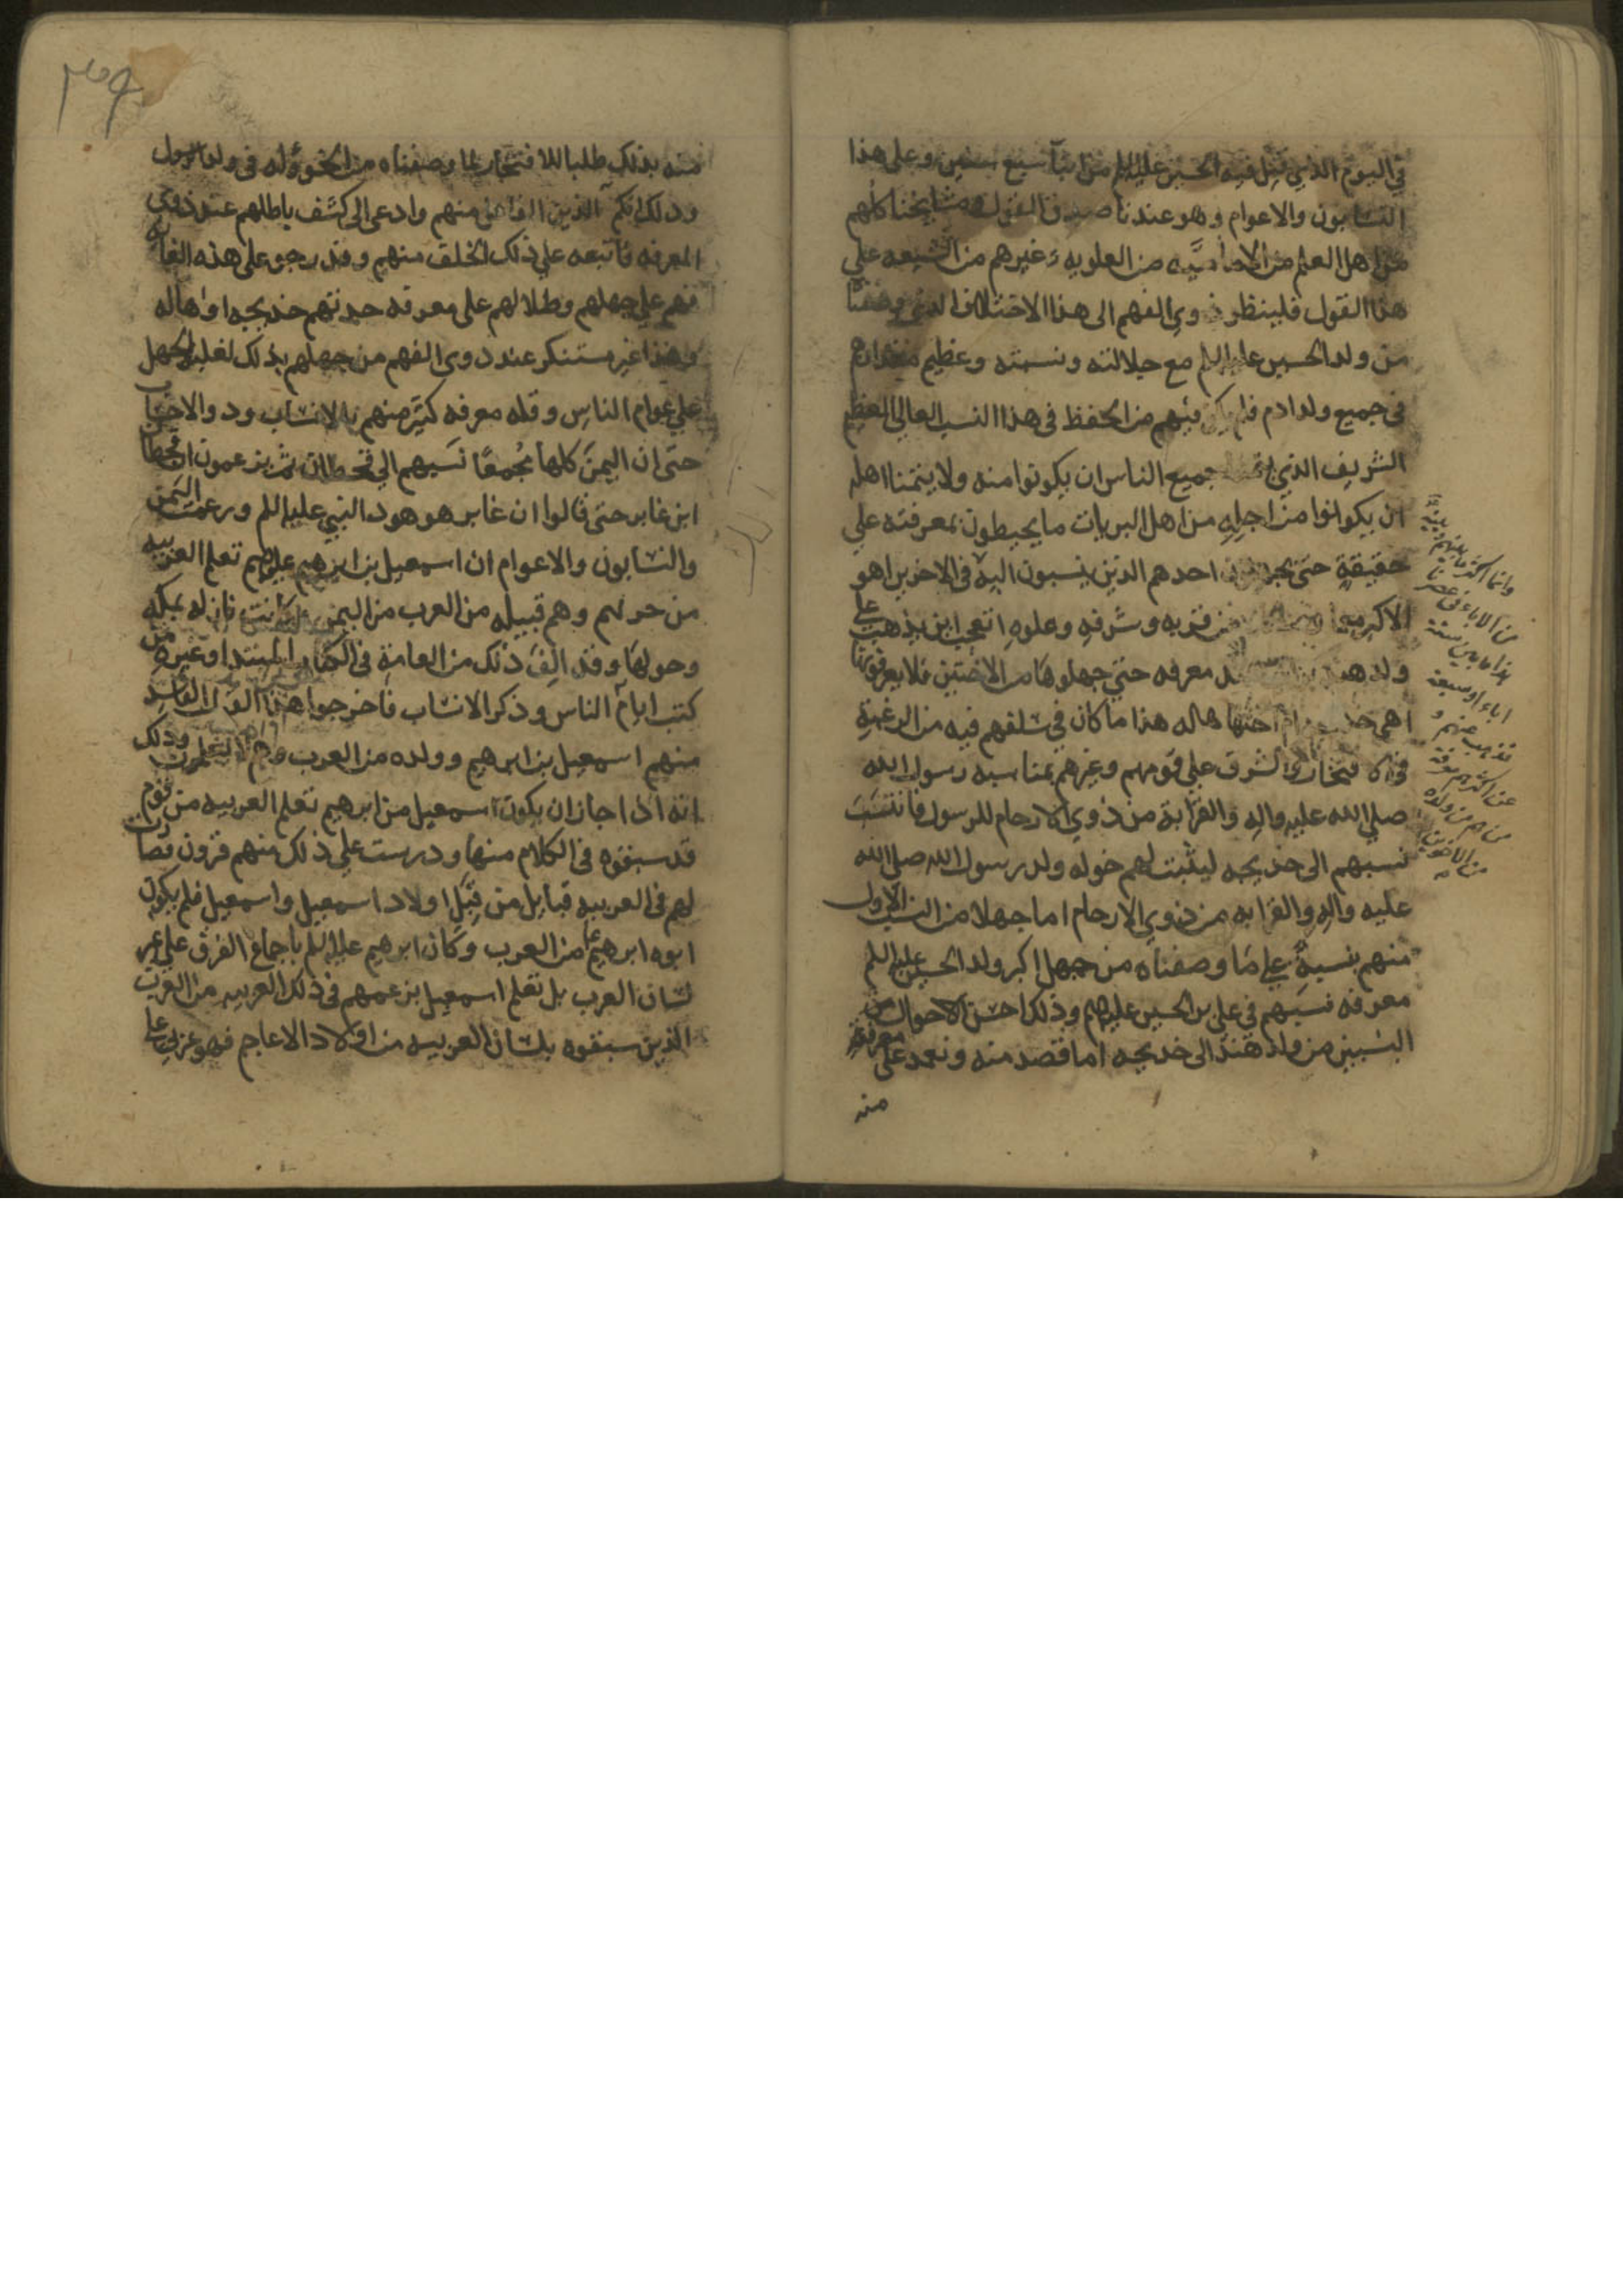 في اليوم الذي قتل فيه الحسين عليه السلم من ابنآ سبع سنين وعلى هذا
النسابون والاعوام وهو عندنا القول مشايخنا كلهم
من اهل العلم من الاماميَّه من العلويه وغيرهم من الشيعه علي
هذا القول فلينظر ذوي الفهم الى هذا الاختلاف الذي وصفنا
من ولد الحسين عليه السلم مع جلالته ونسبته وعظيم مقدارهم
في جميع ولد ادم فلم يكن فيهم من الحفظ في هذا النسب العالي العظيم
الشريف الذي جميع الناس ان يكونوا منه ولا يتمنا اهله
ان يكوانوا من اجله من اهل البريات ما يحيطون بمعرفته علي
حقيقةٍ حتى احدهم الذين ينسبون اليه في الاخرين اهو
الاكبر من قربه وشرفه وعلوه اتعجب ان يذهب علي
ولد هند معرفه حتي جهلوها من الاختين فلا يعرفونها
اهي خديجه ام اختها هاله هذا ما كان في سلفهم فيه من الرغبةِ
في الافتخار والشرف علي قومهم وغيرهم بمناسبه رسول الله
صلي الله عليه واله والقرابة من ذوي الارحام للرسول فانتسَبَ
نسبهم الى خديجه ليثبت لهم خوله ولد رسول الله صلي الله
عليه واله والقرابه من ذوي الارحام اما جهلا من النسب الاول
منهم بنسبةٍ علي مَا وصفناه من جهل اكبر ولد الحسين عليه السلم
معرفه نسبهم في علي بن الحسين عليهم وذلك احسن الاحوال من
النسبين من ولد هند الى خديجه اما قصد منه وتعمد على معرفةٍ
منه
وانما اكثر ما بينهم وبينه
من الاباء في عصرنا
هذا ما بين ستة
اباء او سبعة
فذهب عنهم و
عن اكثرهم معرفة
من هم من ولده
من الاخوين
٣٠٩
منه بذلك طلبا للافتخار لما وصفناه من الخووله في ولد الرسول
وذلك انكم الذين منهم وادعى الى كشف باطلهم عند ذوي
المعرفه فاتبعه علي ذلك الخلف منهم وقد رجو على هذه الغايه
فهم علي جهلهم وظلالهم على معرفه جدتهم خديجه او هاله
وهذا غير مستنكر عند ذوى الفهم من جهلهم بذلك لغلبه الجهل
علي عوام الناس وقله معرفه كثير منهم بالانساب ود والاحساب
حتى ان اليمنَ كلها مُجمعًا نسبهم الي قحطان ثم يزعمون ان قحطان
ابن غابر حتى قالوا ان غابر هو هود النبي عليه السلم وزعمت اليمن
والنسابون والاعوام ان اسمعيل بن ابرهيم عليهم تعلم العربيه
من جرهم وهم قبيله من العرب من اليمن كانت نازله بمكه
وحولها وقد الف ذلك من العامة في الكتاب المبتدا وغيره من
كتب ايام الناس وذكر الانساب فاخرجوا هذا القول الفاسد
منهم اسمعيل بن ابرهيم وولده من العرب وهم لا يعلمون وذلك
انه اذا جاز ان يكون اسمعيل من ابرهيم تعلم العربيه من قوم
قد سبقوه في الكلام منها ودرست علي ذلك منهم قرون فصارت
لهم في العربيه قبايل من قِبَلِ اولاد اسمعيل واسمعيل فلم يكون
ابوه ابرهيم من العرب وكان ابرهيم عليه السلم باجماع الفرق علي غير
لسان العرب بل تعلم اسمعيل بزعمهم في ذلك العربيه من العرب
الذين سبقوه بلسان العربيه من اولاد الاعاجم فهو عربي علي